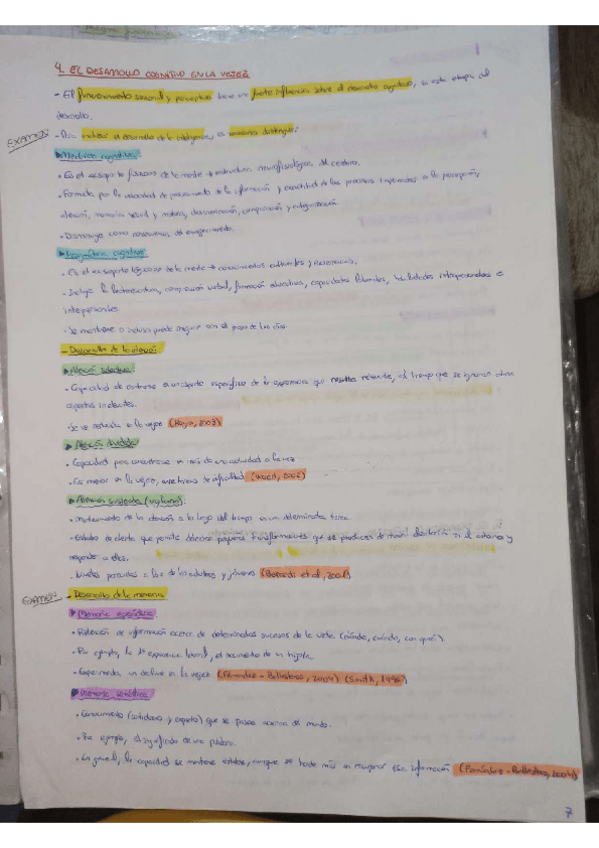 4. EL DESARROLLO COGNITIVO EN LA VEJEZ
- El funcionamiento sensorial y perceptivo tiene una fuerte influencia sobre el desarrollo cognitivo, en esta etapa del
desarrollo.
EXAMEN
- Para el desarrollo de la inteligencia, es necesario distinguir:
Mecánica cognitiva:
· Es el de la mente → estructura neurofisiológica del cerebro.
· Formada por la velocidad de procesamiento de la información y exactitud de los procesos implicados en la percepción,
atención, memoria visual y motora, discriminación, comparación y categorización.
· Disminuye como consecuencia del envejecimiento.
Pragmática cognitiva:
· Es el de la mente → conocimientos culturales y
· Incluye la lectoescritura, comprensión verbal, formación educativa, capacidades habilidades intrapersonales e
interpersonales
· Se mantiene o incluso puede mejorar con el paso de los años.
- Desarrollo de la atención:
Atención selectiva:
· Capacidad de centrarse en un aspecto específico de la experiencia que resulta relevante, al tiempo que se ignoran otros
aspectos
· Se ve reducida en la vejez
Atención dividida:
· Capacidad para concentrarse en más de una actividad a la vez
· Es menor en la vejez,
Atención sostenida (vigilancia):
· Mantenimiento de la atención a lo largo del tiempo en una determinada tarea.
· Estado de alerta que permite detectar pequeñas transformaciones que se producen de manera en el entorno y
responder a ellas.
· Niveles parecidos a los de los adultos y jóvenes
EXAMEN
- Desarrollo de la memoria
Memoria episódica:
· Retención de información acerca de determinados sucesos de la vida (dónde, cuándo, con qué).
· Por ejemplo, la 1ª experiencia laboral, el nacimiento de un hijo/a.
· Experimenta un declive en la vejez (Fernández - Ballesteros, 2004) (Smith, 1996)
Memoria semántica:
· Conocimiento (cotidiano y experto) que se posee acerca del mundo.
· Por ejemplo, el significado de una palabra.
· En general, la capacidad se mantiene estable, aunque se tarde más en recuperar esa información (Fernández - Ballesteros, 2004)
7